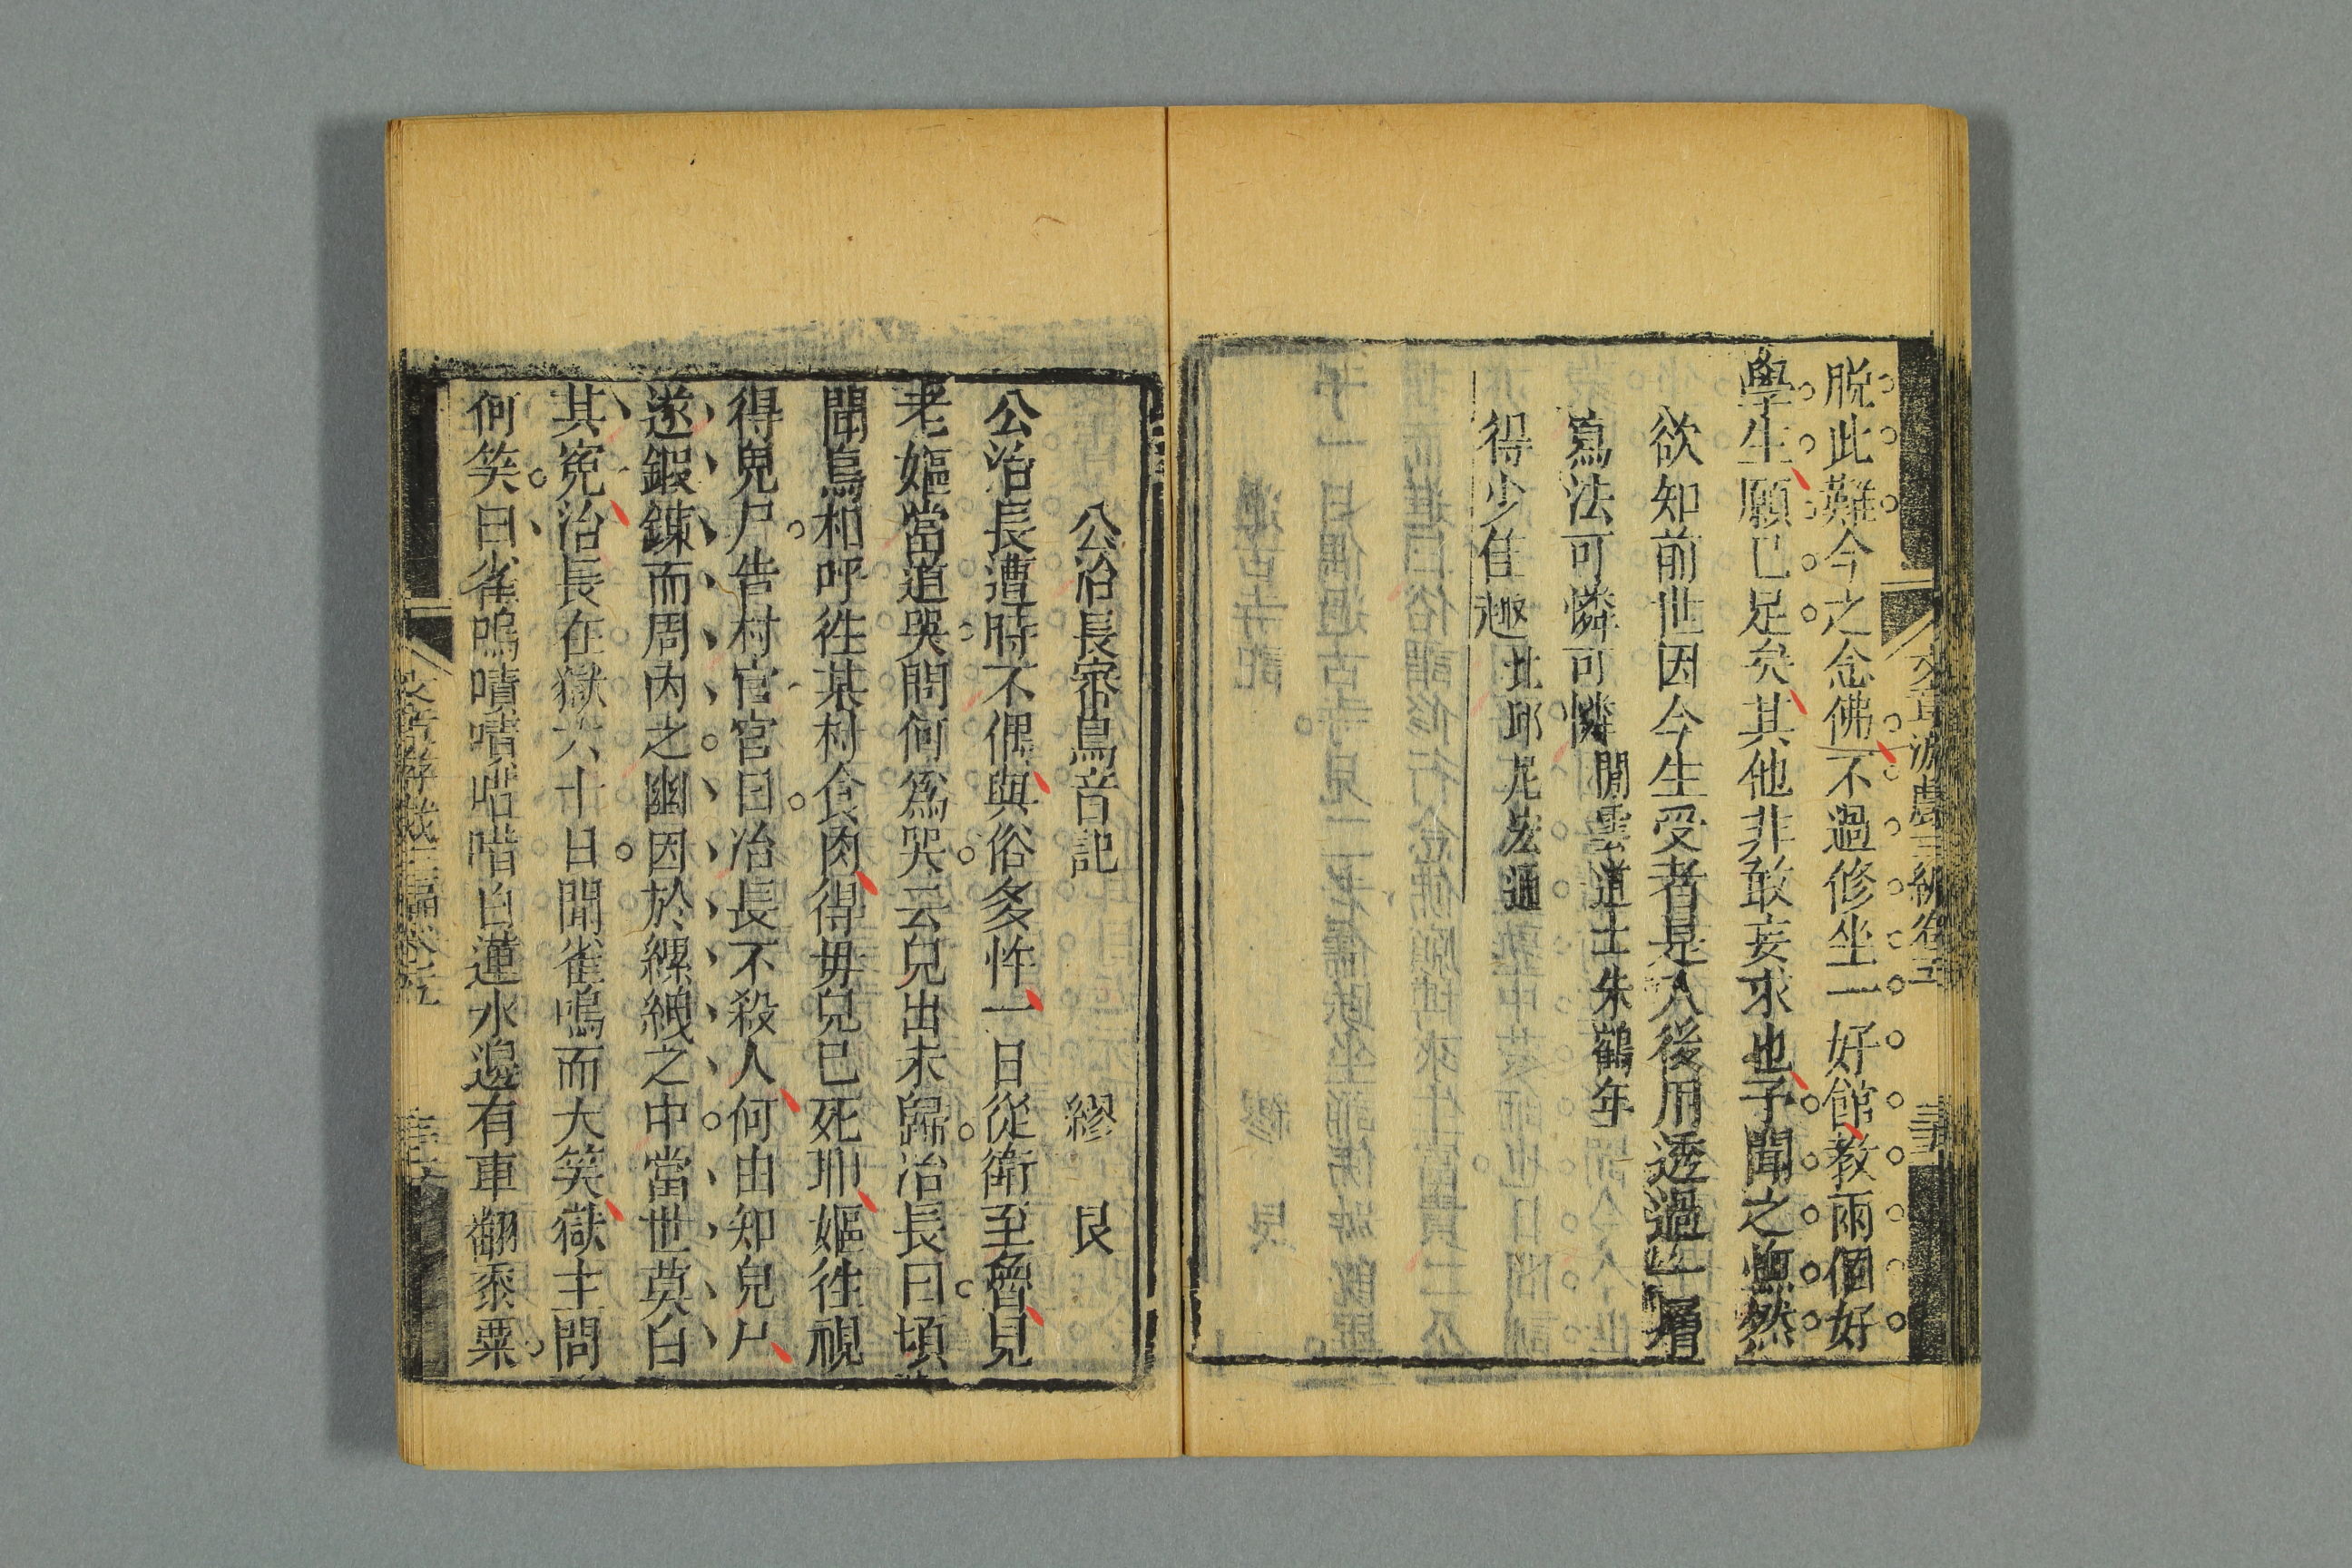 脱此難今之念佛不過修坐一好館教兩個好
學生願已足矣其他非敢妄求也予聞之憮然
欲知前世因今生受者是人後用透過一層
寫法可憐可憐閒雲道士朱鶴年
得少佳趣北邱尼岳通
公冶長審鳥音記 繆 艮
公冶長遭時不偶與俗多忤一日從衛至魯見
老嫗當道哭問何爲哭云兒出未歸冶長曰頃
聞鳥相呼徃某村食肉得毋兒已死耶嫗徃視
得兒尸告村官官曰冶長不殺人何由知兒尸
遂鍜鍊而周内之幽囚於縲絏之中當世莫白
其寃冶長在獄六十日聞雀鳴而大笑獄主問
何笑曰雀鳴嘖嘖唶唶白蓮水邊有車翻黍粟
文章游戲三編卷五